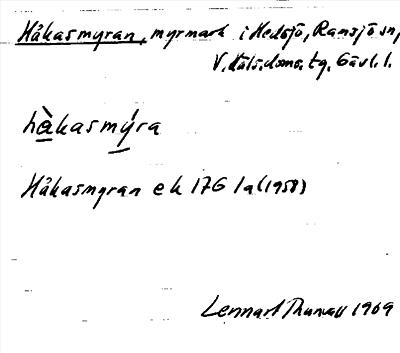 Håkasmyran, myrmark i Hedsjö, Ramsjö sn,
V. Häls. doms. tg. Gävl. l.
hå̀kasmýra
Håkasmyran ek 17G 1a (1958)
Lennart 1969